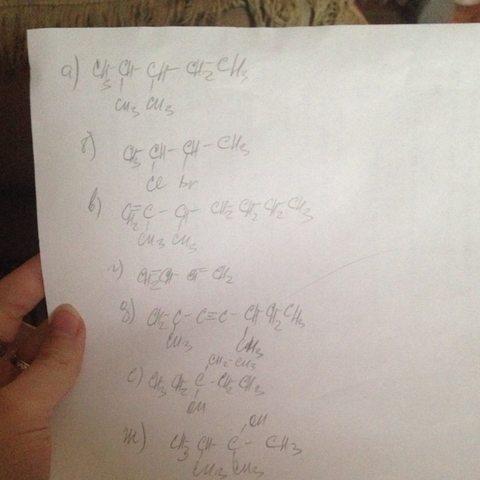 а) CH3-CH-CH-CH2-CH3
CH3 CH3
б) CH3-CH-CH-CH3
Cl Br
в) CH2=C-CH-CH2-CH2-CH2-CH3
CH3 CH3
г)
д)
CH3 CH3
CH2-CH3
е) CH3-CH2-C-CH2-CH3
OH
OH
ж) CH3-CH-C-CH3
CH3 CH3